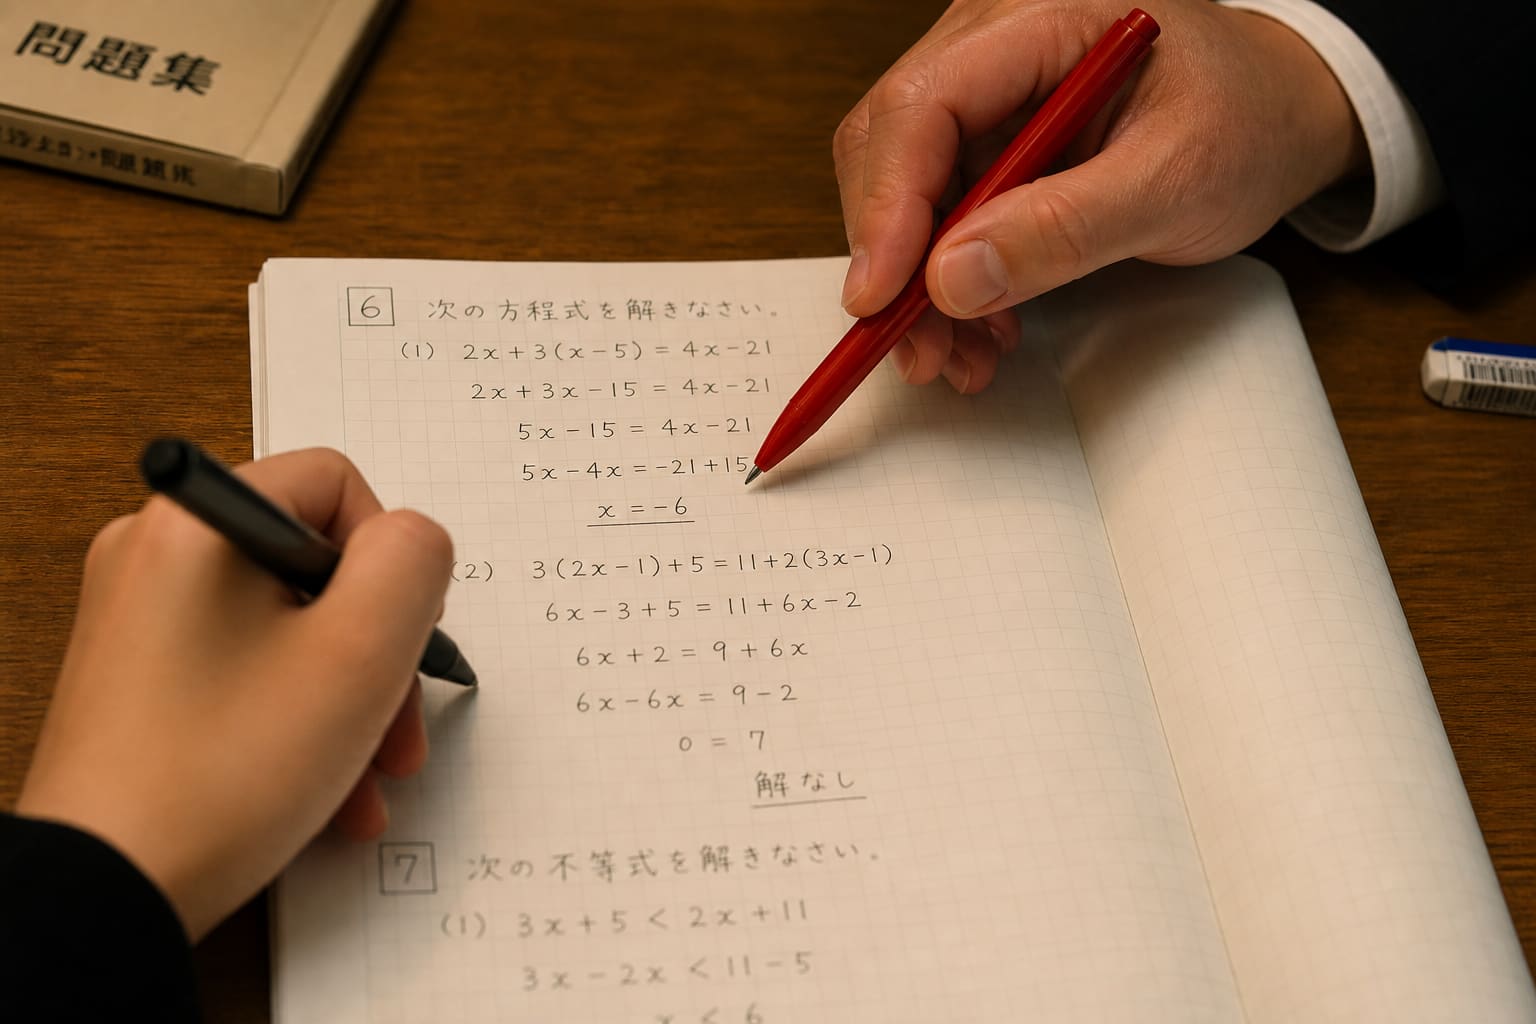 問題集
6 次の方程式を解きなさい。
(1) 2x+3(x-5)=4x-21
2x+3x-15=4x-21
5x-15=4x-21
5x-4x=-21+15
x=-6
(2) 3(2x-1)+5=11+2(3x-1)
6x-3+5=11+6x-2
6x+2=9+6x
6x-6x=9-2
0=7
解なし
7 次の不等式を解きなさい。
(1) 3x+5<2x+11
3x-2x<11-5
x<6